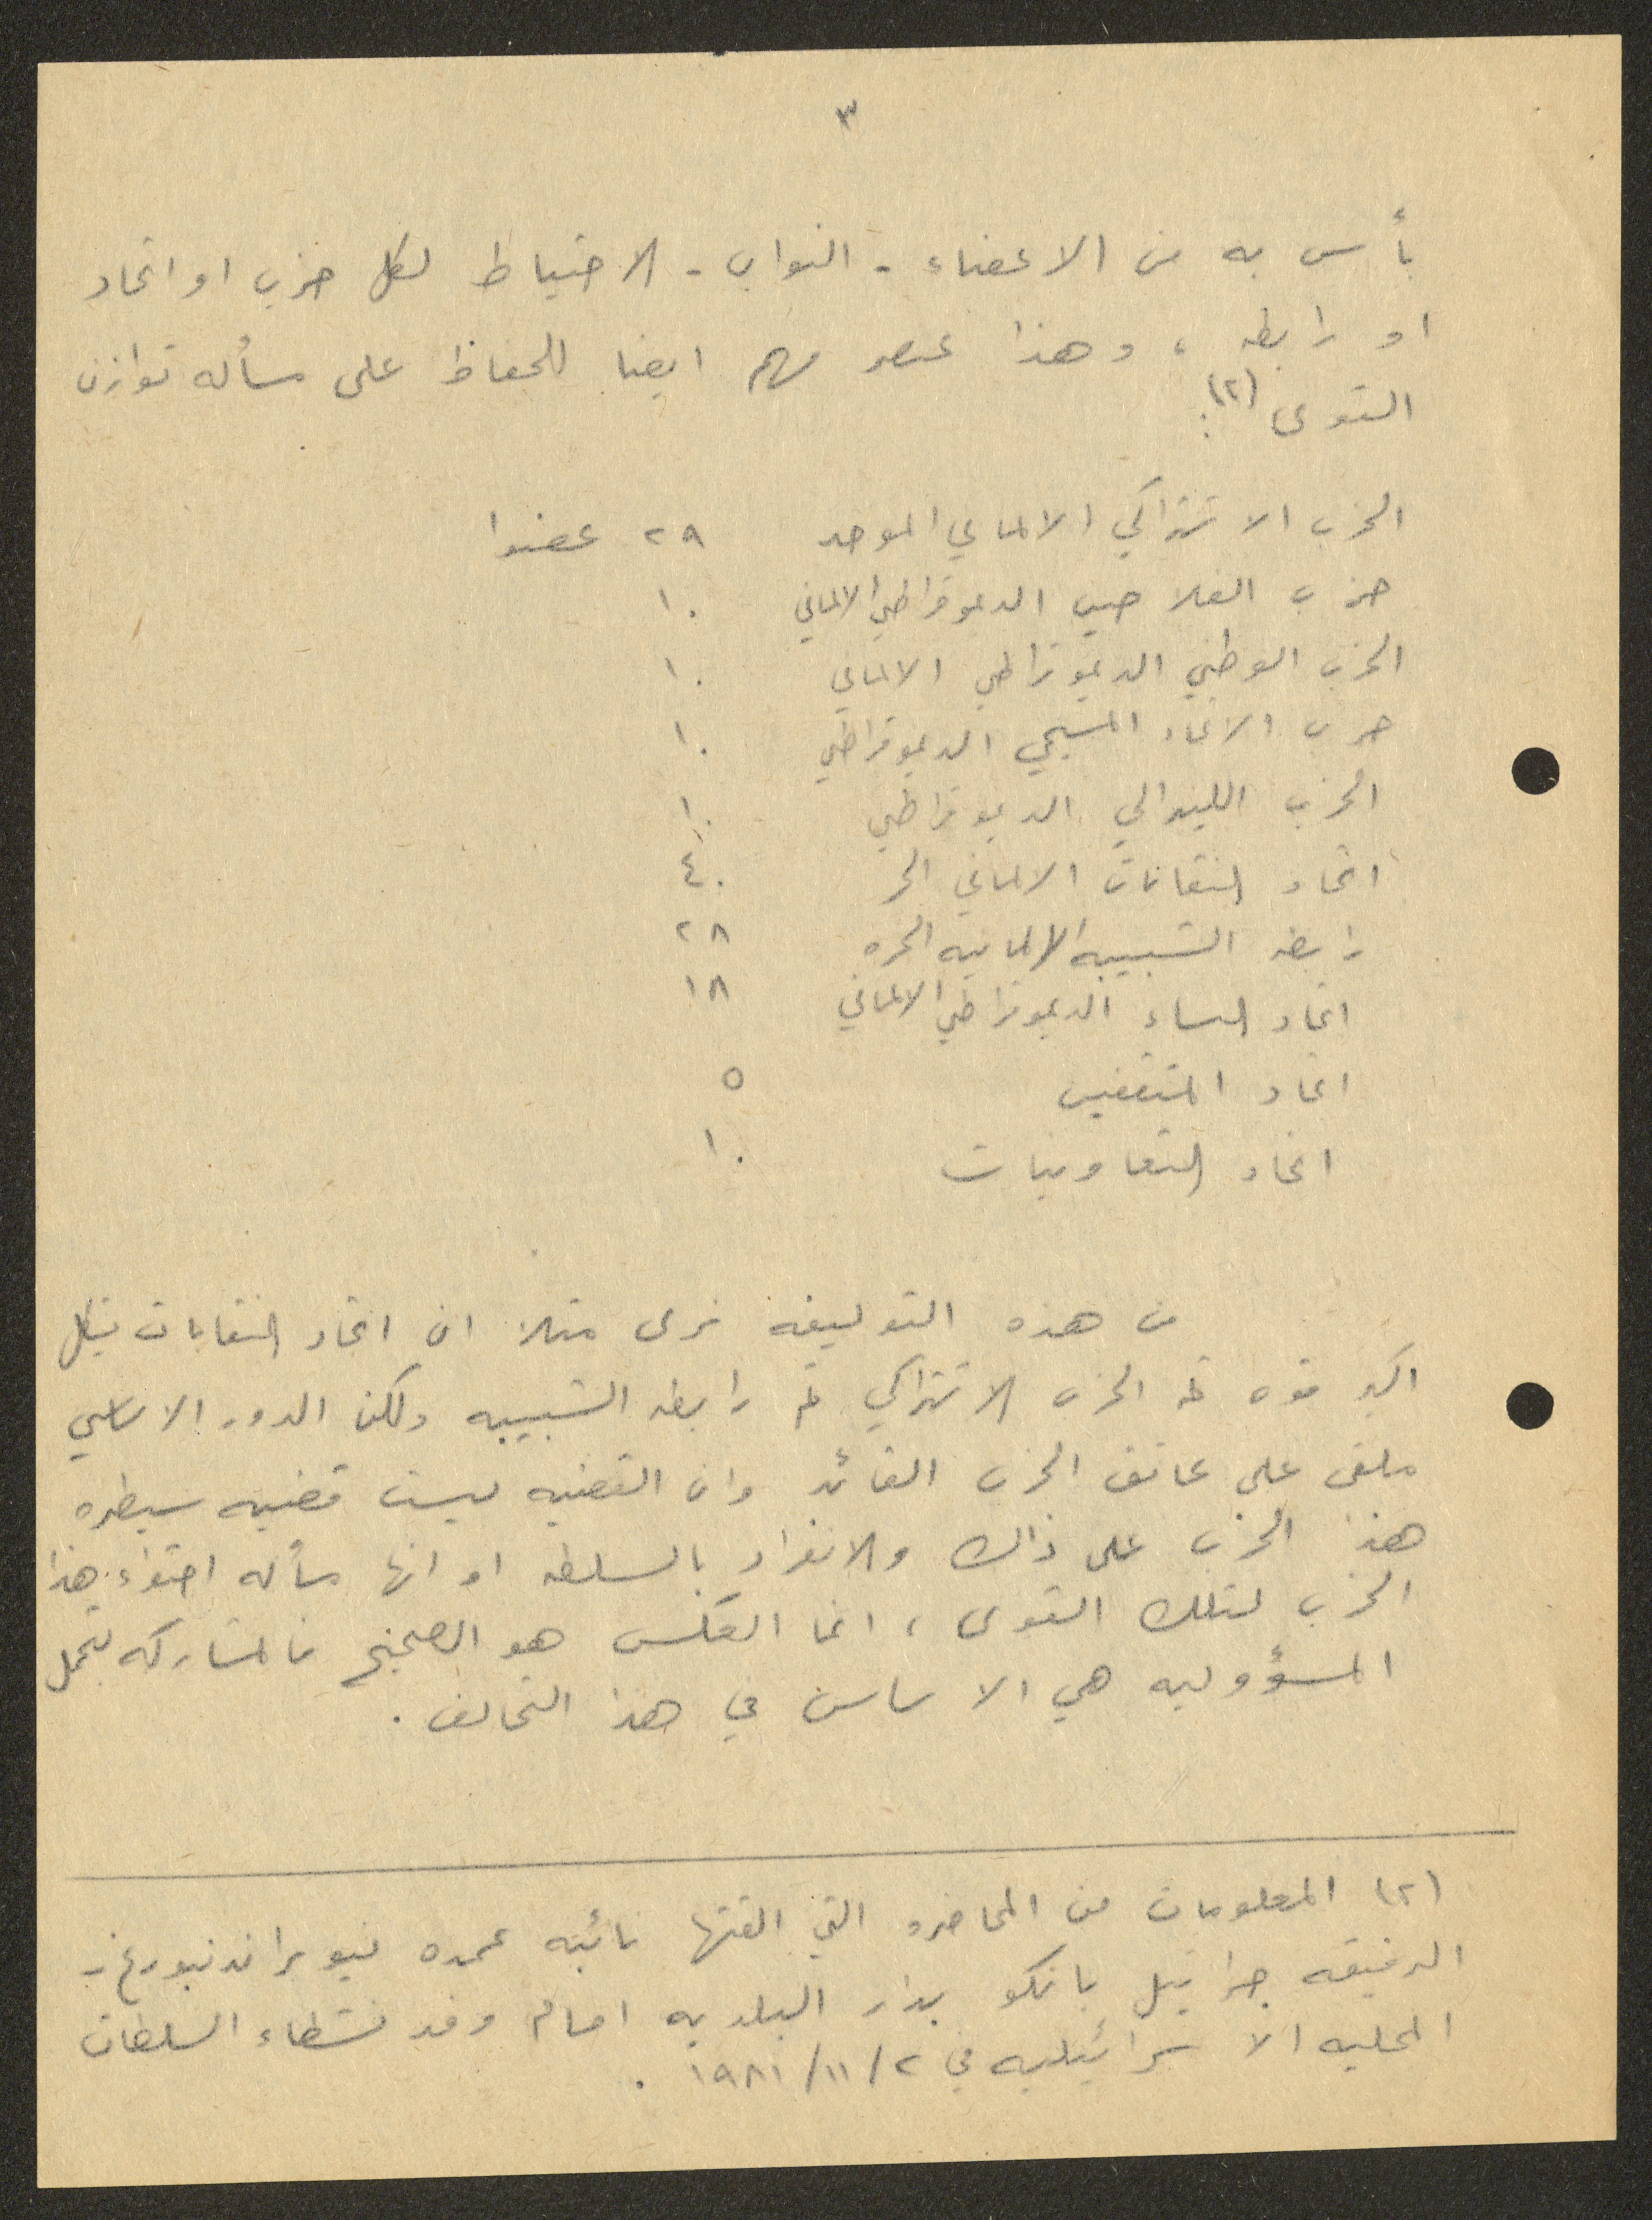 ٣
بأس به من الاعضاء - النواب - الاحتياط لكل حزب او اتحاد
او رابطه ، وهذا عنصر مهم ايضا للحفاظ على مسأله توازن
القوى (٢):
الحزب الاشتراكي الالماني الموحد ٢٩ عضوا
حزب الفلاحين الديموقراطي الالماني ١٠
الحزب الوطني الديموقراطي الالماني ١٠
حزب الاتحاد المسيحي الديموقراطي ١٠
الحزب الليبرالي الديموقراطي ١٠
اتحاد النقابات الالماني الحر ٤٠
رابطه الشبيبه الالمانيه الحره ٢٨
اتحاد النساء الديموقراطي الالماني ١٨
اتحاد المثقفين ٥
اتحاد التعاونيات ١٠
من هذه التوليفه نرى مثلا ان اتحاد النقابات يشكل
اكبر قوه ثم الحزب الاشتراكي ثم رابطه الشبيبه ولكن الدور الاساسي
ملقى على عاتق الحزب القائد وان القضيه ليست قضيه سيطره
هذا الحزب على ذاك والانفراد بالسلطه او انها مسأله احتواء هذا
الحزب لتلك القوى ، انما العكس هو الصحيح فالمشاركه بتحمل
المسؤوليه هي الاساس في هذا التحالف .
(٢) المعلومات من المحاضره التي القتها نائبه عمده نيوبراندنبورغ -
الرفيقه جرائيل بانكو بدار البلديه امام وفد نشطاء السلطات
المحليه الاسرائيليه في ٢/١١/١٩٨١ .